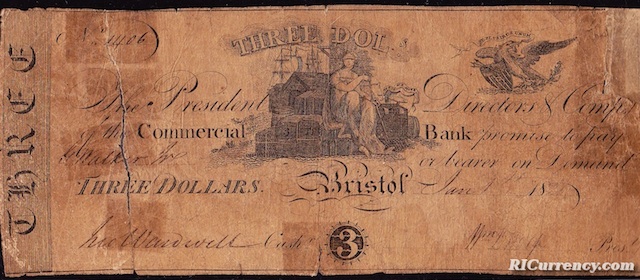 THREE
No. 1406
THREE DOL
The President Directors & Comp.
of the Commercial Bank promise to pay
or bearer on Demand
THREE DOLLARS. Bristol Jan
Wardwell Cash. 3 Pres.
RICurrency.com